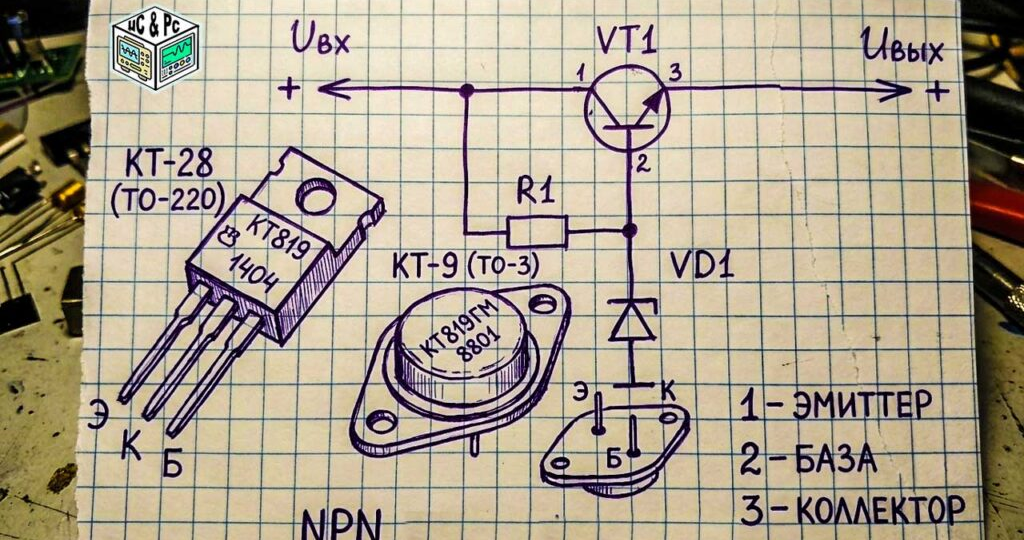 µC & Pc
Uвх
VT1
Uвых
+
1
3
+
2
КТ-28
(ТО-220)
R1
КТ819
1404
КТ-9 (ТО-3)
VD1
КТ819ГМ
8801
Э
К
Б
Э
К
Б
1 – ЭМИТТЕР
2 – БАЗА
3 – КОЛЛЕКТОР
NPN